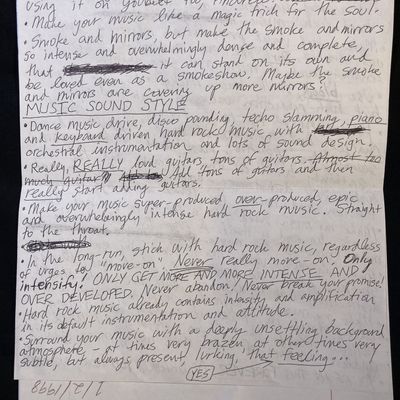 using it on yourself too, sincerely
• Make your music like a magic trick for the soul.
• Smoke and mirrors, but make the smoke and mirrors
so intense and overwhelmingly dense and complete,
that it can stand on its own and
be loved even as a smokeshow. Maybe the smoke
and mirrors are covering up more mirrors?
MUSIC SOUND STYLE
• Dance music drive, disco pounding, techo slamming, piano
and keyboard driven hard rock music, with
orchestral instrumentation and lots of sound design.
• Really, REALLY loud guitars, tons of guitars. Almost too
much guitar!! Add tons of guitars and then
really start adding guitars.
• Make your music super-produced, over-produced, epic
and overwhelmingly intense hard rock music. Straight
to the throat.
• In the long-run, stick with hard rock music, regardless
of urges to "move-on". Never really more-on. Only
intensify! ONLY GET MORE AND MORE INTENSE AND
OVER DEVELOPED. Never abandon! Never break your promise!
• Hard rock music already contains intensity and amplification
in its default instrumentation and attitude.
• Surround your music with a deeply unsettling background
atmosphere - at times very brazen, at other times very
subtle, but always present, lurking, that feeling...
YES
1/2/1998